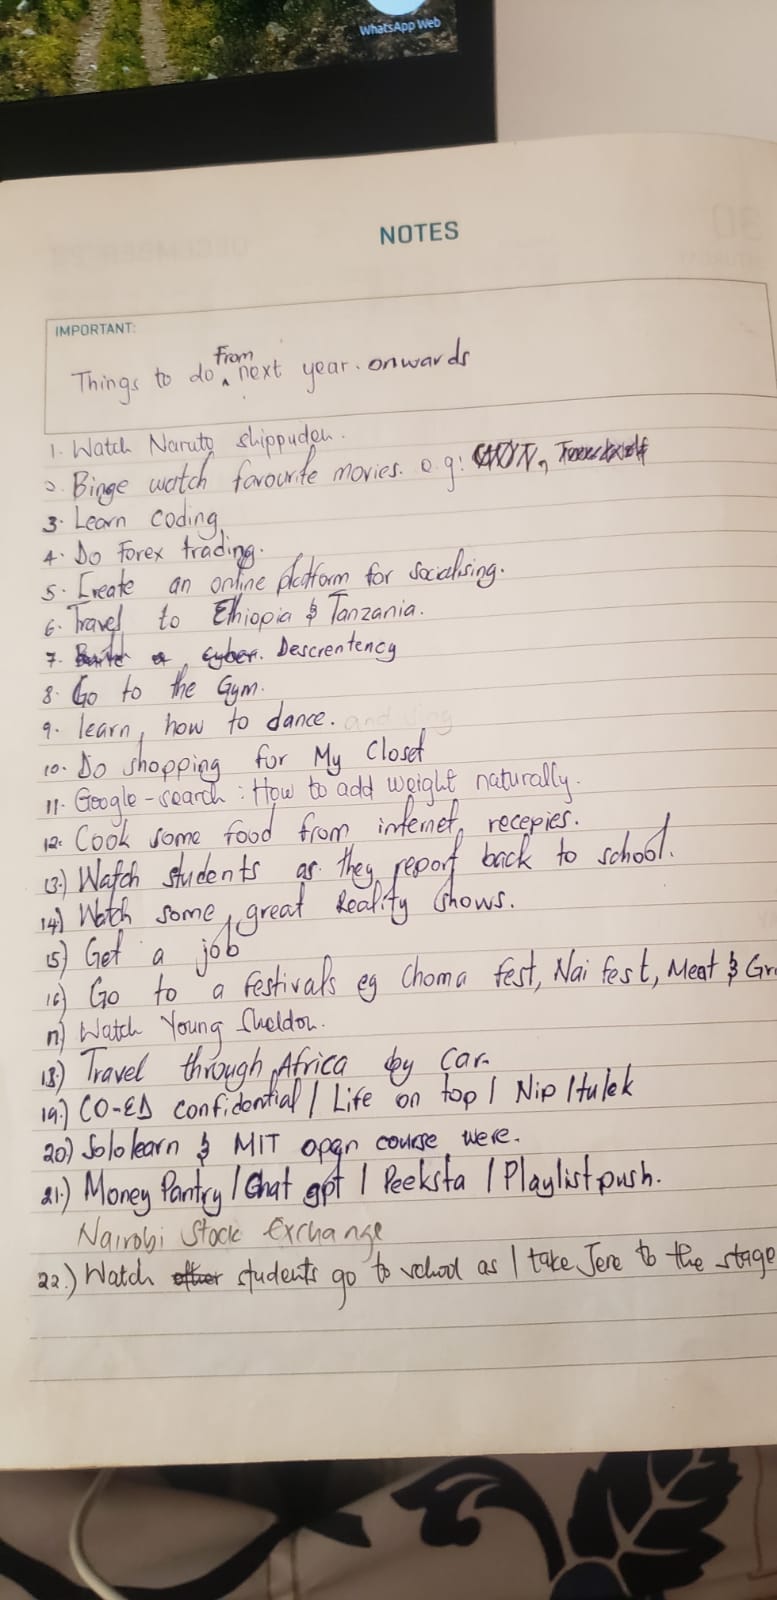 WhatsApp Web
NOTES
IMPORTANT:
Things to do From next year. onwards
1. Watch Naruto shippuden.
2. Binge watch favourite movies. e.g:
3. Learn coding
4. Do Forex trading.
5. Create an online platform for socialising.
6. Travel to Ethiopia & Tanzania.
7. Cyber. Descrentency
8. Go to the Gym.
9. learn how to dance. and sing
10. Do shopping for My Closet
11. Google-search: How to add weight naturally.
12. Cook some food from internet recepies.
13.) Watch students as they report back to school.
14) Watch some great Reality shows.
15) Get a job
16) Go to a festivals eg Choma fest, Nai fest, Meat & Gr
17) Watch Young Sheldon.
18.) Travel through Africa by Car.
19.) CO-ED confidential / Life on top / Nip /tulek
20) Sololearn & MIT open course were.
21.) Money Pantry / Chat gpt / Peeksta / Playlistpush.
Nairobi Stock Exchange
22.) Watch other students go to school as I take Jere to the stage